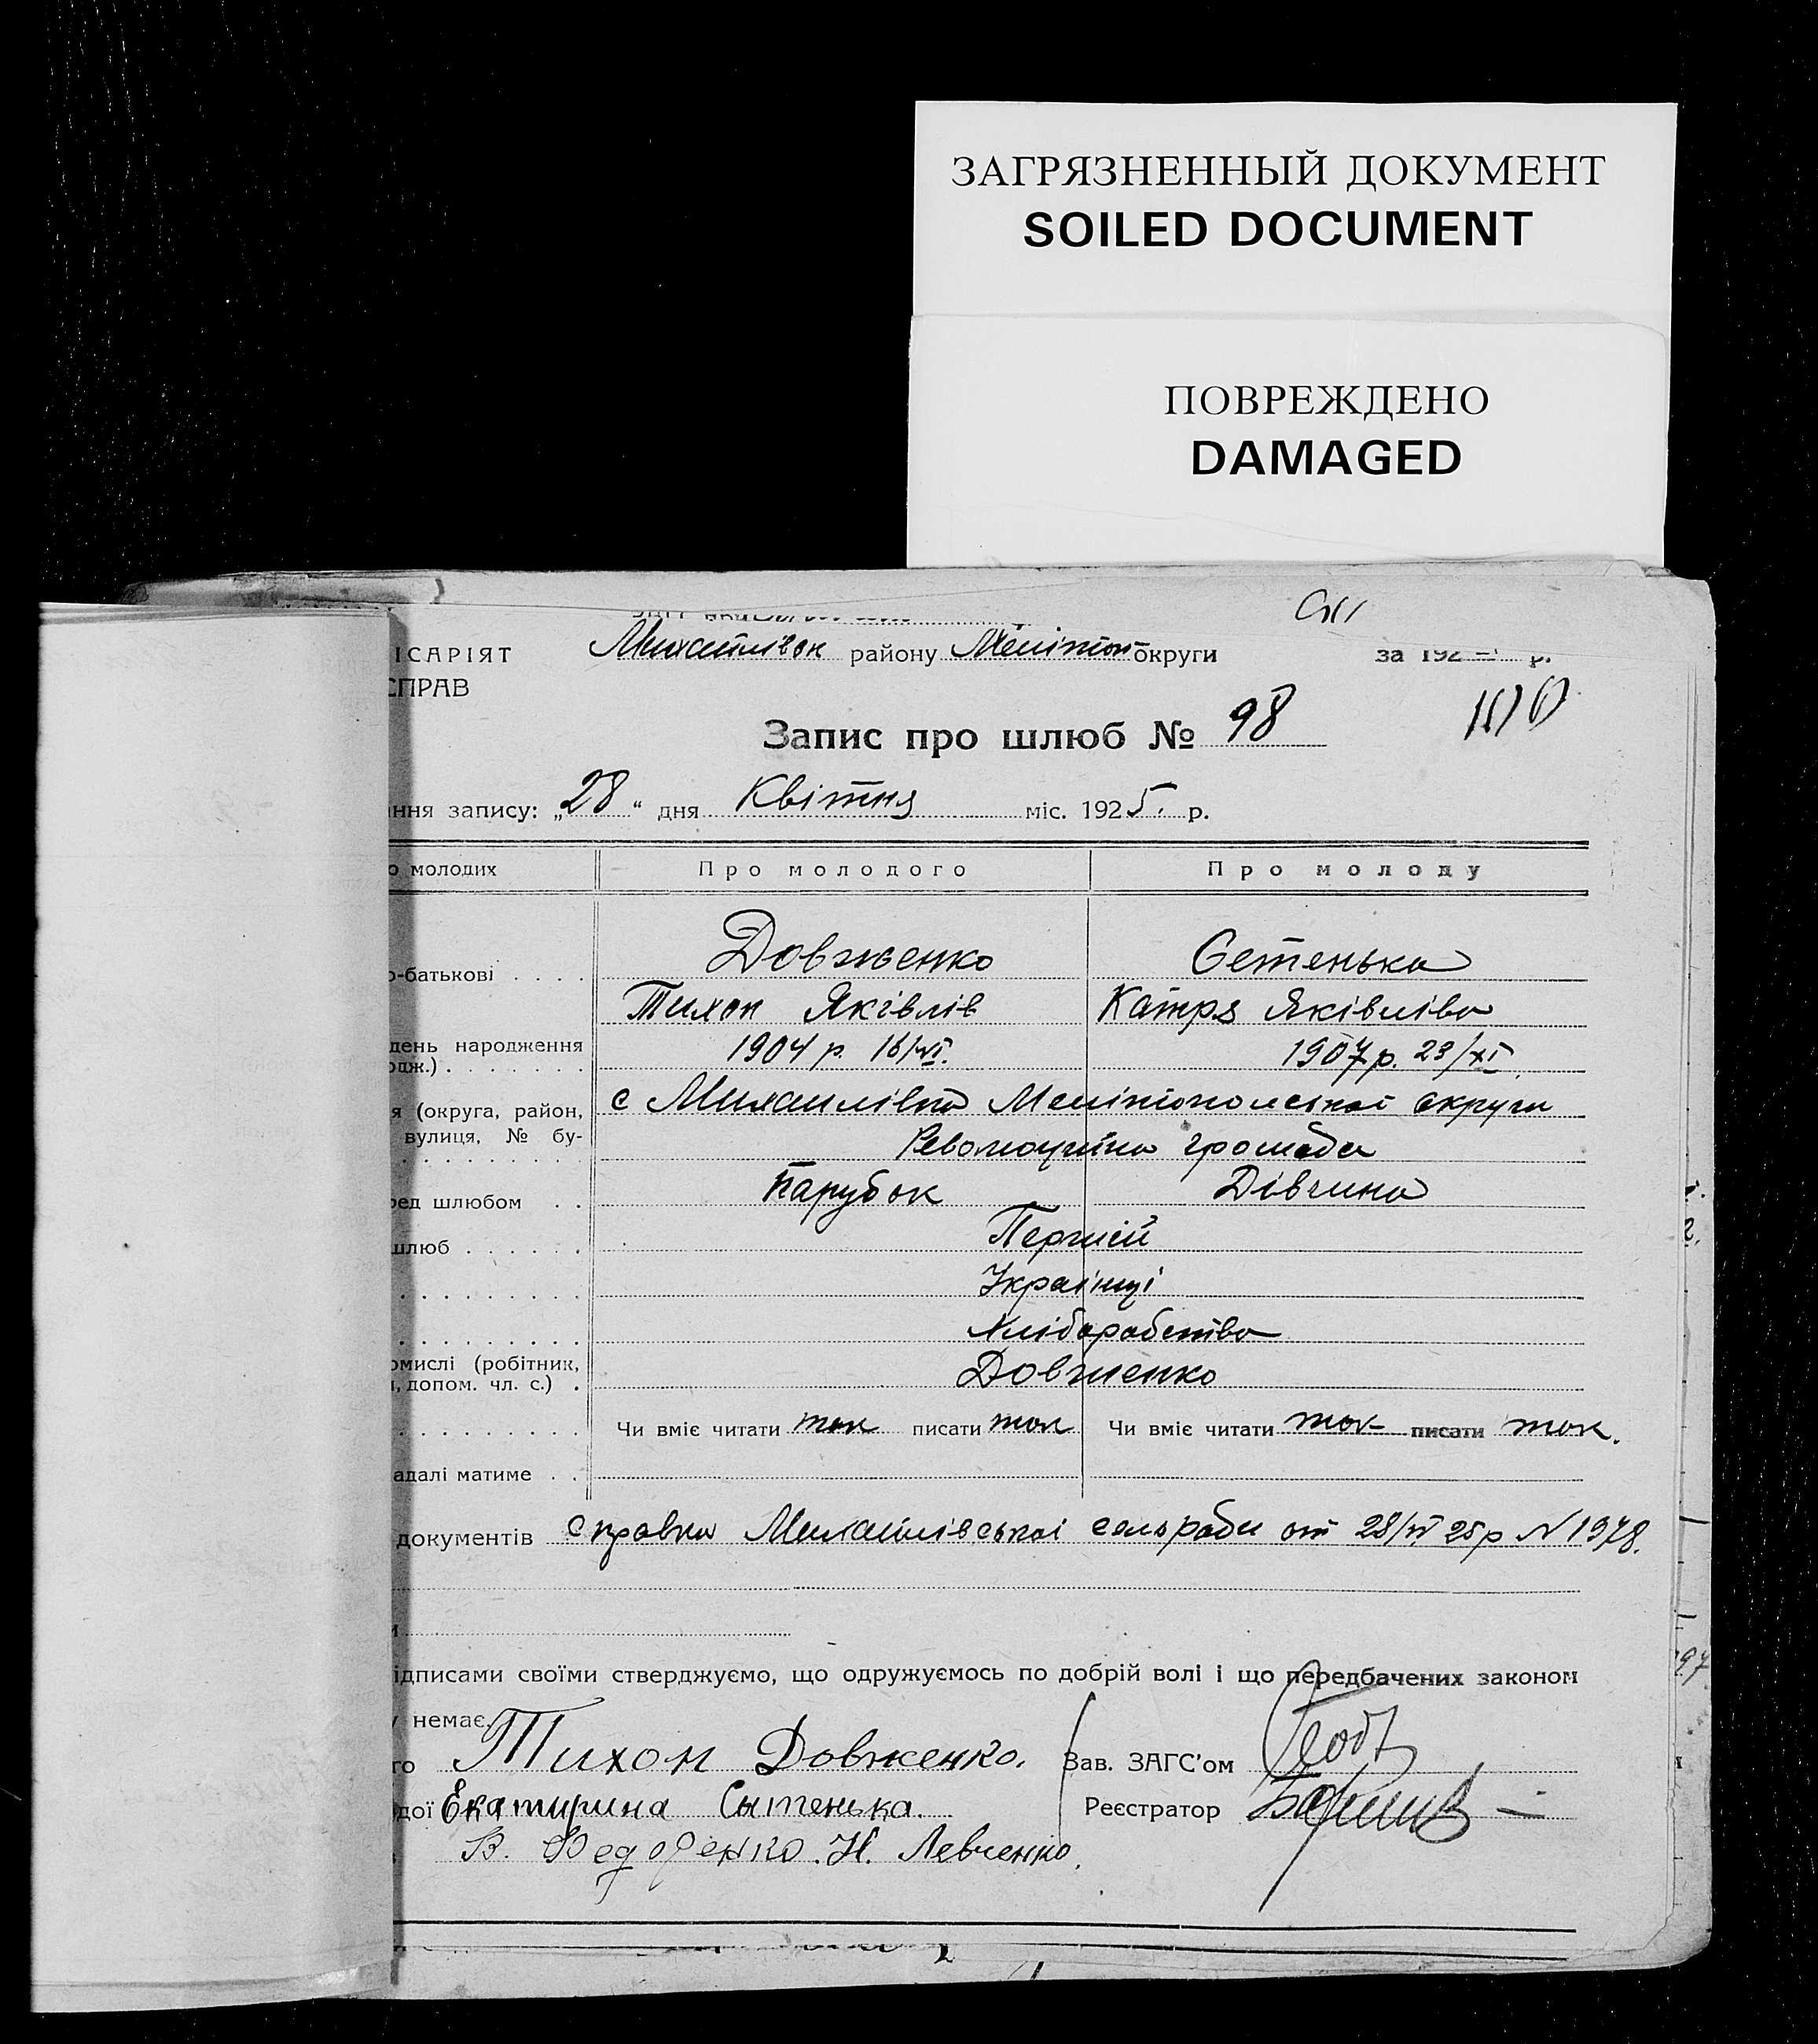 ЗАГРЯЗНЕННЫЙ ДОКУМЕНТ
SOILED DOCUMENT
ПОВРЕЖДЕНО
DAMAGED
ІСАРІЯТ Михайлівск району Мелітоп округи за 192 р.
СПРАВ
Запис про шлюб № 98
ння запису: „28“ дня Квітня міс. 1925. р.
о молодих Про молодого Про молоду
Довженко Сетенька
о-батькові . . . .
Тихон Яківлів Катря Яківліва
день народження 1904 р. 16/VI. 1907 р. 23/XI.
одж.) . . . . . . .
я (округа, район, с Михайлівка Мелітопольскої округи
вулиця, № бу-
Революційна громада
ред шлюбом . . Парубок Дівчина
шлюб . . . . . . Перший
Українці
Хліборобство
омислі (робітник,
, допом. чл. с.) . Довженко
Чи вміє читати так писати так Чи вміє читати так писати так.
адалі матиме . .
документів Справка Михайлівської сельради от 28/IV 25 р N 1978.
ідписами своїми стверджуємо, що одружуємось по добрій волі і що передбачених законом
у немає.
го Тихон Довженко. Зав. ЗАГС'ом
дої Екатирина Сытенька. Реєстратор
В. Федоренко. Н. Левченко.